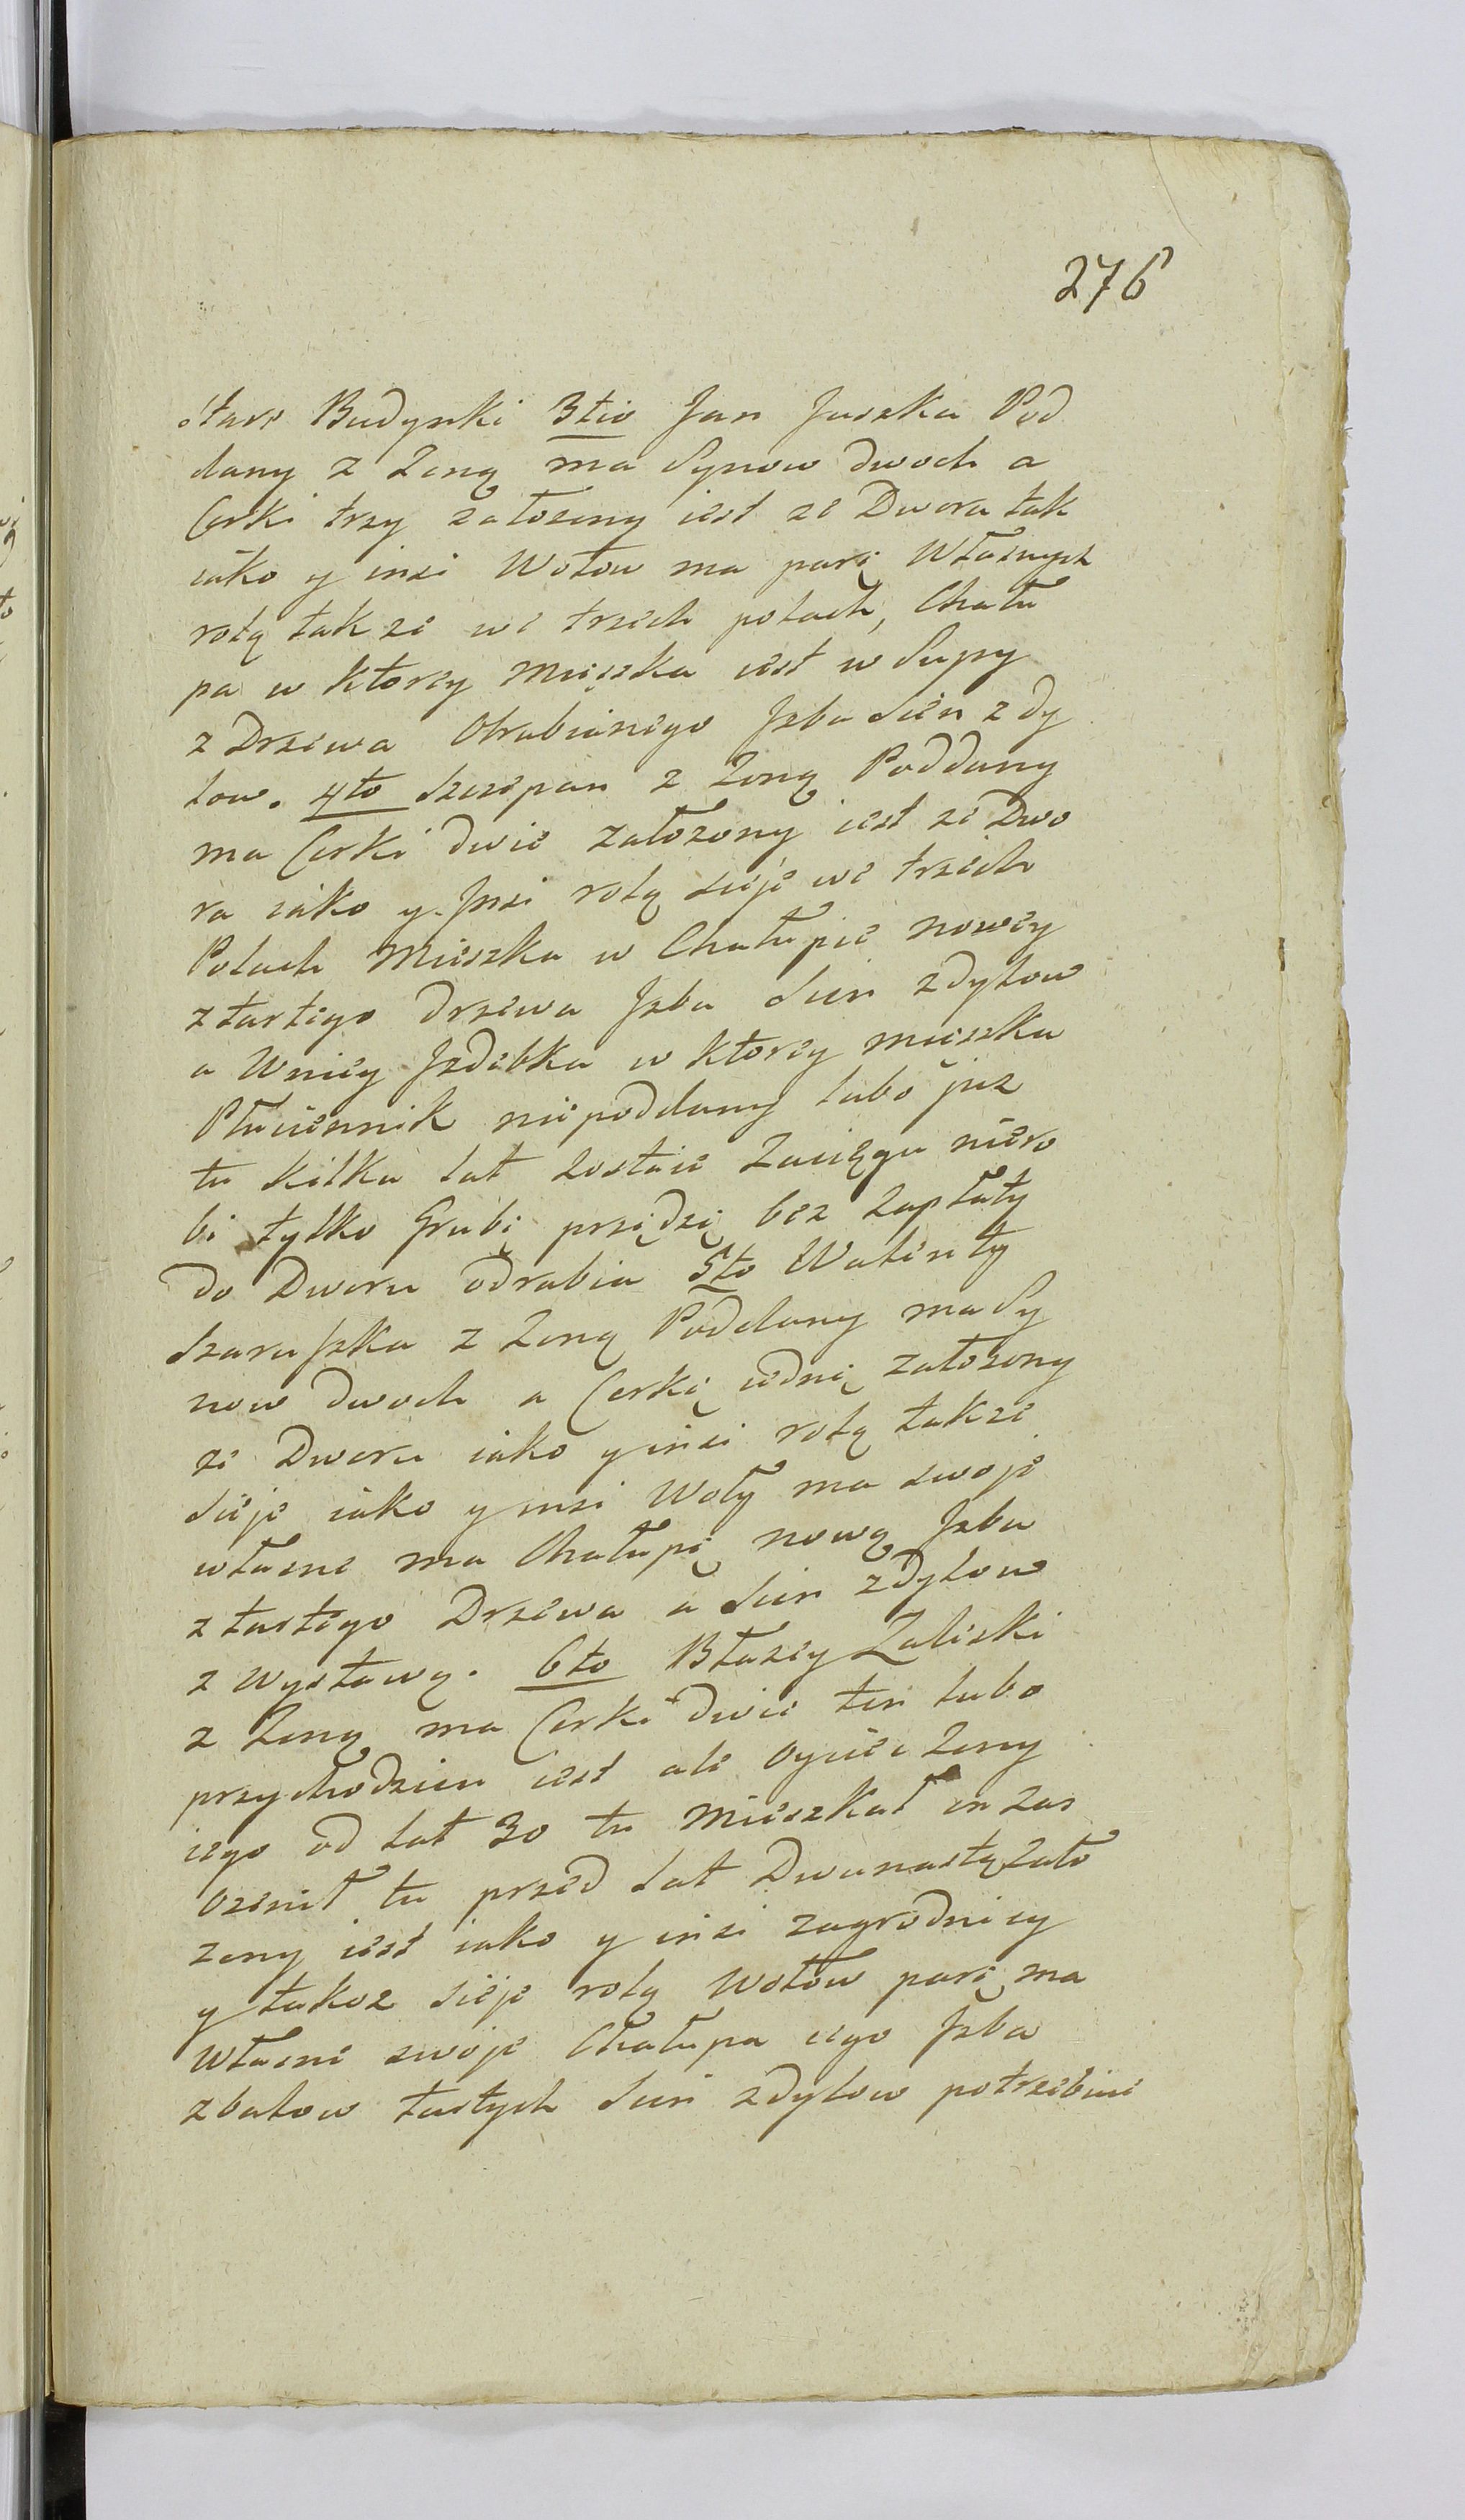 276
stare Budynki 3tio Jan Juszka Pod
dany z Zoną ma Synow dwoch a
Corki trzy załozony iest ze Dworu tak
iako y insi Wołow ma parę Własnych
rolą także we trzech polach, Chału
pa w ktorey Mieszka iest w Supy
z Drzewa Obrabianego Jzba Sien z dy
low. 4to Szczepan z Zoną Poddany
ma Corki dwie załozony iest ze Dwo
ra iako y Jnsi rolą sieje we trzech
Polach Mieszka w Chałupie nowey
z tartego drzewa Jzba Sien z dylow
a Wniey Jzdebka w ktorey mieszka
Płuciennik niepoddany lubo juz
tu kilka lat zostaie Zaciągu niero
bi tylko Grubę przędzę bez Zapłaty
do Dworu odrabia 5to Walenty
Szaruszka z Zoną Poddany ma Sy
now dwoch a Corkę iednę załozony
ze Dworu iako y insi rolą także
Sieje iako y insi Woły ma swoje
własne ma Chałupę nową Jzba
z tartego Drzewa a Sien z dylow
z wystawą. 6to Błazey Zaleski
z Zoną ma Corki dwie ten lubo
przychodzien iest ale Oyciec Zony
iego od lat 30 tu Mieszkał on zas
Ozenił tu przed lat Dwunastą Zało
zony iest iako y insi zagrodnicy
y takoz sieje rolą Wołow parę ma
Własne swoje Chałupa iego Jzba
z balow tartych Sien z dylow potrzebuie